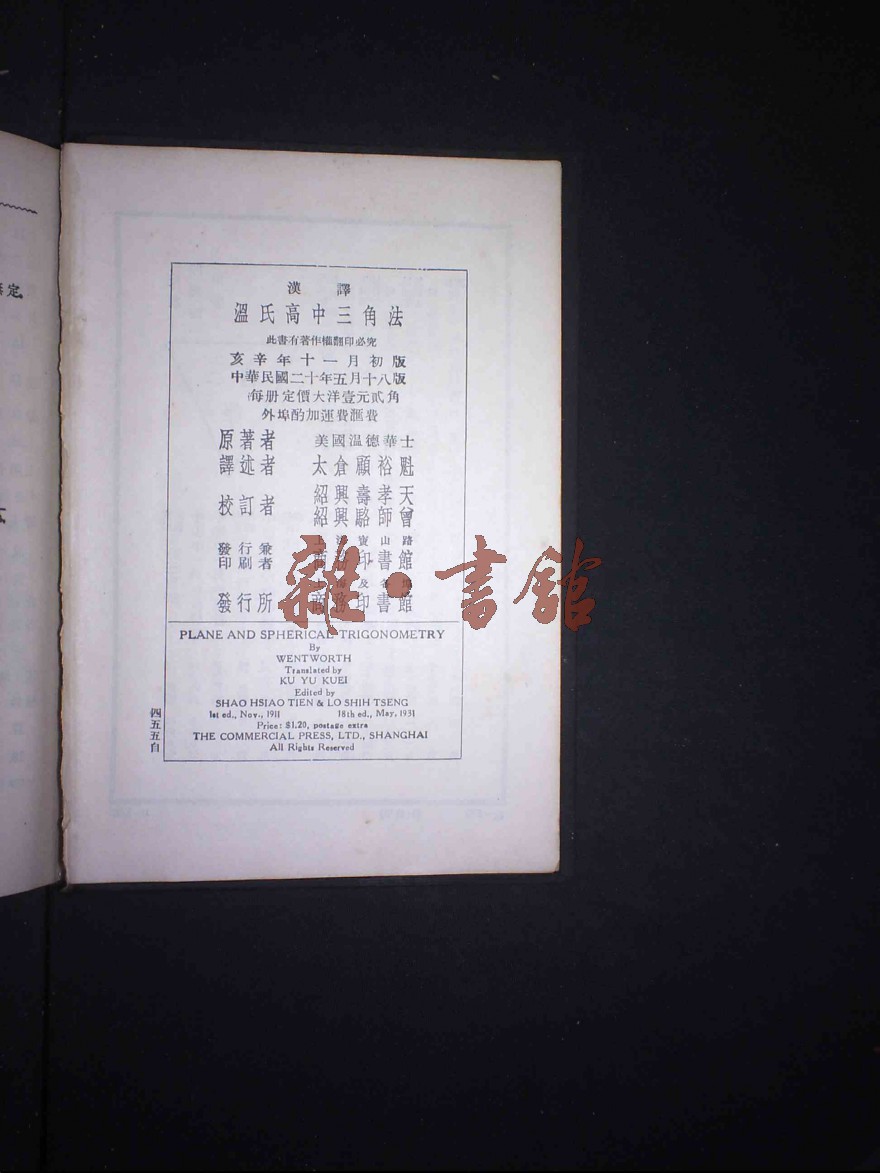 定
漢譯
溫氏高中三角法
此書有著作權翻印必究
亥辛年十一月初版
中華民國二十年五月十八版
(每册定價大洋壹元貳角
外埠酌加運費滙費
原著者 美國温德華士
譯述者 太倉顧裕魁
校訂者 紹興壽孝天
紹興駱師曾
發行兼印刷者 寶山路
商務印書館
發行所 及
商務印書館
雜·書館
PLANE AND SPHERICAL TRIGONOMETRY
By
WENTWORTH
Translated by
KU YU KUEI
Edited by
SHAO HSIAO TIEN & LO SHIH TSENG
1st ed., Nov., 1911 18th ed., May, 1931
Price: $1.20, postage extra
THE COMMERCIAL PRESS, LTD., SHANGHAI
All Rights Reserved
四五五自